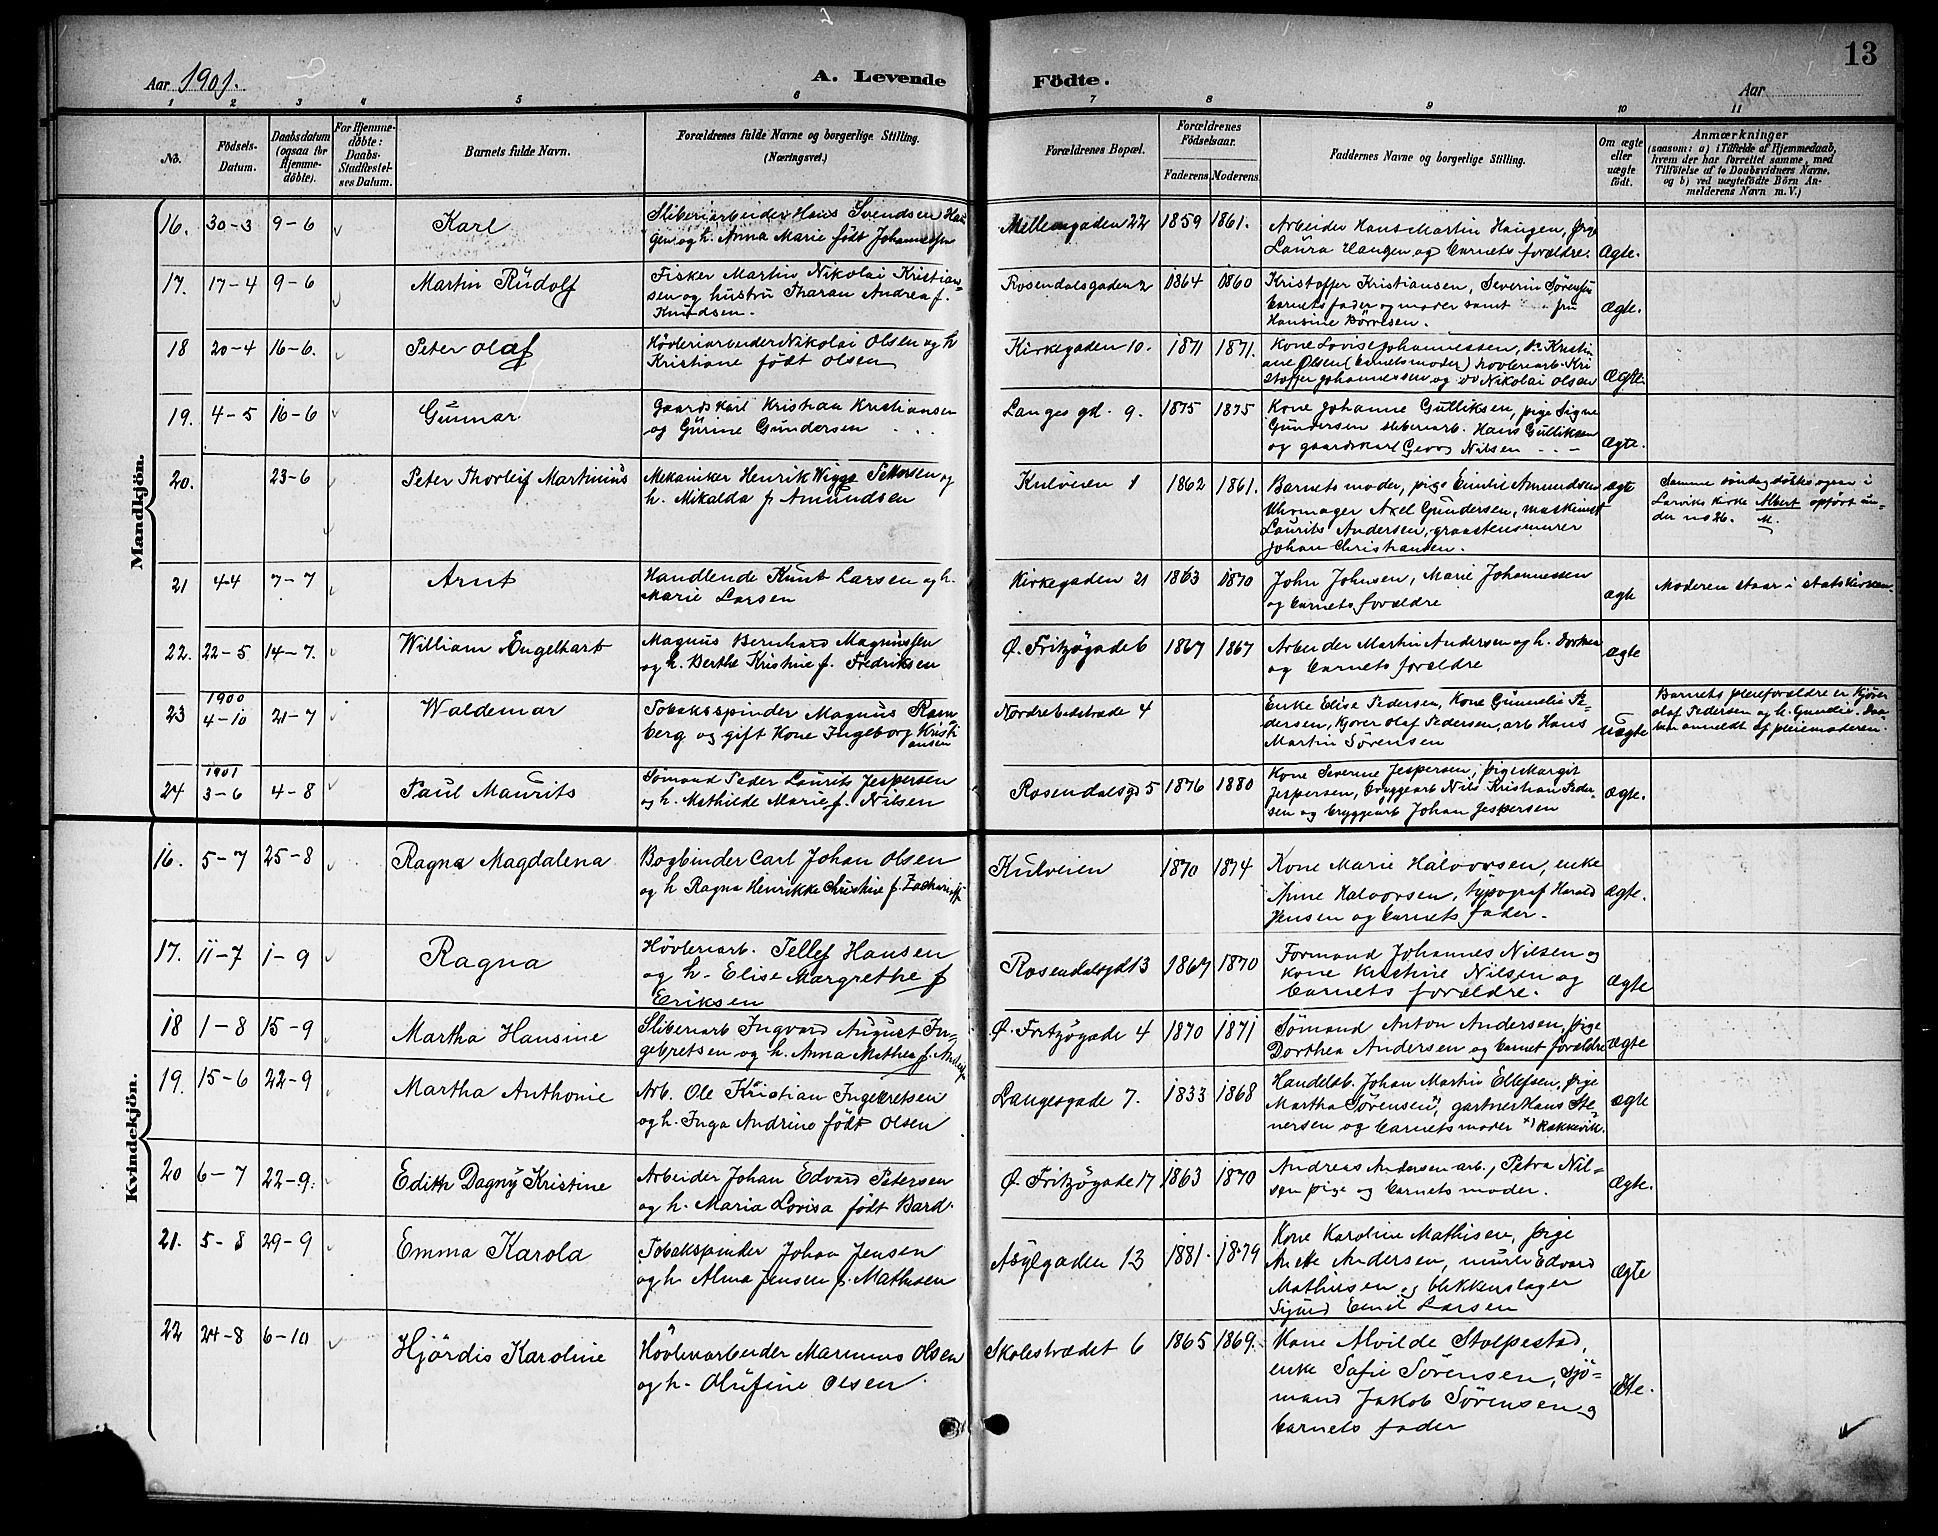 13
Aar 1901. A. Levende Födte. Aar
1 2 3 4 5 6 7 8 9 10 11
No.
Födsels-
Datum.
Daabsdatum
(ogsaa for
Hjemme-
döbte).
For Hjemme-
döbte:
Daabs-
Stadfæstel-
ses Datum.
Barnets fulde Navn.
Forældrenes fulde Navne og borgerlige Stilling.
(Næringsvei.)
Forældrenes Bopæl.
Forældrenes
Födselsaar.
Faderens Moderens
Faddernes Navne og borgerlige Stilling.
Om ægte
eller
uægte
födt.
Anmærkninger
(saasom: a) i Tilfælde af Hjemmedaab,
hvem der har forrettet samme, med
Tilföielse af to Daabsvidners Navne,
og b) ved uægtefödte Börn An-
melderens Navn m. V.)
Mandkjön.
16. 30-3 9-6 Karl
Sliberiarbeider Hans Svendsen Hau
gen og h. Anna Marie født Johannessen
Mellemgaden 22 1859 1861.
Arbeider Hans Martin Haugen, pige
Laura Haugen og barnets forældre. Ægte.
17. 17-4 9-6 Martin Rudolf
Fisker Martin Nikolai Kristian-
sen og hustru Tharan Andrea f.
Knudsen.
Rosendalsgaden 2 1864 1860
Kristoffer Kristiansen, Severin Sørensen
barnets fader og moder samt fru
Hansine Børresen. Ægte.
18 20-4 16-6. Peter Olaf
Høvleriarbeider Nikolai Olsen og h
Kristiane født Olsen
Kirkegaden 10. 1871 1871.
Kone Lovise Johannessen, do Kristi
ane Olsen (barnets moder) høvleriarb. Kri
stoffer Johannessen og do Nikolai Olsen Ægte.
19. 4-5 16-6 Gunnar
Gaardskarl Kristian Kristiansen
og Gurine Gundersen
Langes gd. 9. 1875 1875
Kone Johanne Gulliksen, pige Signe
Gundersen sliberiarb. Hans Gulliksen
og gaardskarl Georg Nilsen Ægte.
20. 23-6 Peter Thorleif Martinius
Mekaniker Henrik Wiggo Pettersen og
h. Mikalda f. Amundsen
Kulveien 1 1862 1861.
Barnets moder, pige Emilie Amundsen
Uhrmager Axel Gundersen, maskinist
Laurits Andersen, graastensmurer
Johan Christiansen. Ægte
Samme søndag døbtes ogsaa i
Larviks kirke Albert opført un-
der no 26. M.
21 4-4 7-7 Arnt
Handlende Knut Larsen og h.
Marie Larsen
Kirkegaden 21 1863 1870
John Johnsen, Marie Johannessen
og barnets forældre Ægte
Moderen staar i statskirken.
22. 22-5 14-7. William Engelhart
Magnus Bernhard Magnussen
og h. Berthe Kristine f. Fredriksen
Ø. Fritzøgade 6 1867 1867
Arbeider Martin Andersen og h. Dorthea
og barnets forældre Ægte
23 1900
4-10 21-7 Waldemar
Tobaksspinder Magnus Ram
berg og gift Kone Ingeborg Kristi
ansen
Nordre Badstræde 4
Enke Elise Pedersen, Kone Gunelie Pe-
dersen, kjører Olaf Pedersen, arb Hans
Martin Sørensen uægte
Barnets pleieforældre er kjører
Olaf Pedersen og h. Gunelie. Daa-
ben anmeldt af pleiemoderen.
24 1901
3-6 4-8 Paul Maurits
Sømand Peder Laurits Jespersen
og h. Mathilde Marie f. Nilsen
Rosendalsgd 5 1876 1880
Kone Severine Jespersen, pige Margit
Jespersen, bryggearb Nils Kristian Peder-
sen og bryggearb Johan Jespersen Ægte.
Kvindekjön.
16. 5-7 25-8 Ragna Magdalena
Bogbinder Carl Johan Olsen
og h Ragna Henrikke Christine f. Zachariassen
Kulveien 1870 1874
Kone Marie Halvorsen, enke
Anne Halvorsen, typograf Harald
Jensen og barnets fader. Ægte.
17. 11-7 1-9 Ragna
Høvleriarb. Tellef Hansen
og h. Elise Margrethe f
Eriksen
Rosendalsgd 13 1867 1870
Formand Johannes Nilsen og
kone Kristine Nilsen og
barnets forældre. Ægte
18 1-8 15-9 Martha Hansine
Sliberiarb Ingvard August In-
gebretsen og h. Anna Mathea f. Anders.
Ø. Fritzøgade 4 1870 1871
Sømand Anton Andersen, pige
Dorthea Andersen og barnet forældre Ægte
19. 15-6 22-9 Martha Anthonie
Arb. Ole Kristian Ingebretsen
og h. Inga Andrine født Olsen
Langesgade 7. 1833 1868
Handelsb. Johan Martin Ellefsen, pige
Martha Sørensen*), gartner Hans Ste-
nersen og barnets moder *) Rakkevik. Ægte
20 6-7 22-9. Edith Dagny Kristine
Arbeider Johan Edvard Petersen
og h. Maria Lovisa født Bard.
Ø. Fritzøgade 17 1863 1870
Andreas Andersen arb., Petra Nil-
sen pige og barnets moder. Ægte.
21. 5-8 29-9 Emma Karola
Tobakspinder Johan Jensen
og h Alma Jensen f. Mathisen
Asylgaden 13 1881. 1879
Kone Karoline Mathisen, pige
Anette Andersen, murer Edvard
Mathisen og blikkenslager
Sigurd Emil Larsen Ægte
22 24-8 6-10 Hjördis Karoline
Høvleriarbeider Marinius Olsen
og h. Olufine Olsen.
Skolestrædet 6 1865 1869.
Kone Alvilde Stolpestad,
enke Sofie Sørensen, sjø-
mand Jakob Sørensen og
barnets fader Ægte.